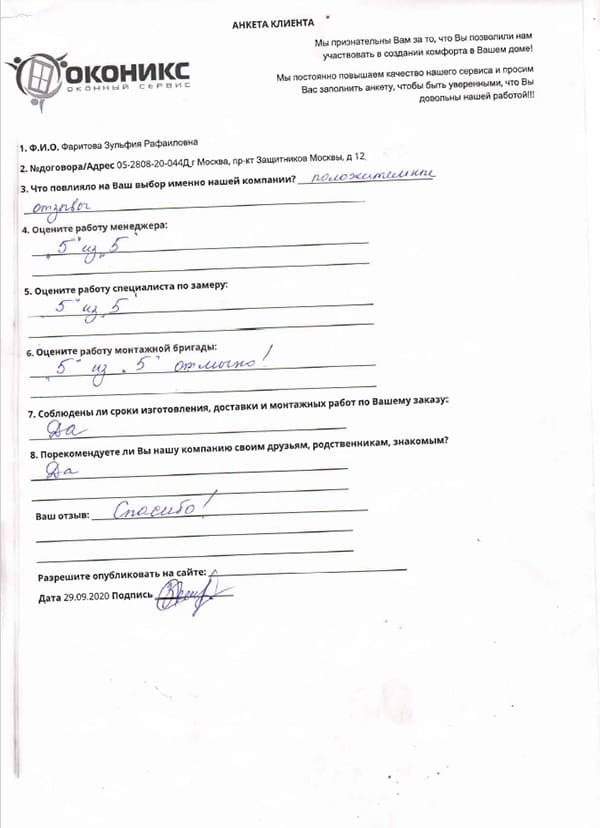 АНКЕТА КЛИЕНТА
Мы признательны Вам за то, что Вы позволили нам
участвовать в создании комфорта в Вашем доме!
ОКОНИКС
ОКОННЫЙ СЕРВИС
Мы постоянно повышаем качество нашего сервиса и просим
Вас заполнить анкету, чтобы быть уверенными, что Вы
довольны нашей работой!!!
1. Ф.И.О. Фаритова Зульфия Рафаиловна
2. №договора/Адрес 05-2808-20-044Д,г Москва, пр-кт Защитников Москвы, д 12,
3. Что повлияло на Ваш выбор именно нашей компании? положительные
отзывы
4. Оцените работу менеджера:
„5" из „5"
5. Оцените работу специалиста по замеру:
„5" из „5"
6. Оцените работу монтажной бригады:
„5" из „5" отлично!
7. Соблюдены ли сроки изготовления, доставки и монтажных работ по Вашему заказу:
Да
8. Порекомендуете ли Вы нашу компанию своим друзьям, родственникам, знакомым?
Да
Ваш отзыв: Спасибо!
Разрешите опубликовать на сайте:
Дата 29.09.2020 Подпись